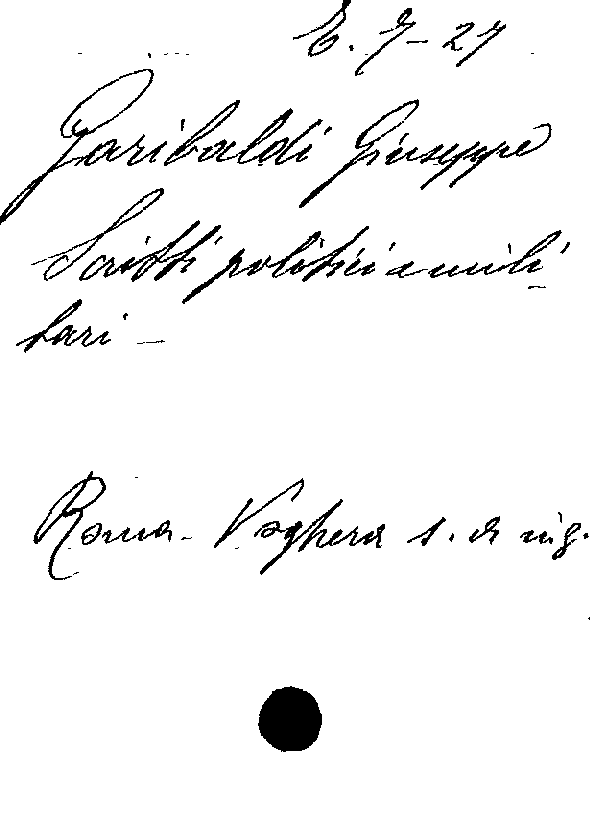 E. 7-27
Garibaldi Giuseppe
Scritti politici e mili
tari -
Roma - Voghera s. a in 8.